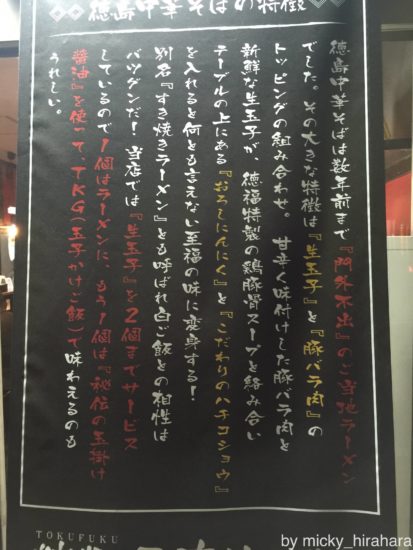 徳島中華そばの特徴
徳島中華そばは数年前まで『門外不出』のご当地ラーメン
でした。その大きな特徴は『生玉子』と『豚バラ肉』の
トッピングの組み合わせ。 甘辛く味付けした豚バラ肉と
新鮮な生玉子が、徳福特製の鶏豚骨スープと絡み合い
テーブルの上にある『おろしにんにく』と『こだわりのハチコショウ』
を入れると何とも言えない至福の味に変身する！
別名『すき焼きラーメン』とも呼ばれ白ご飯との相性は
バツグンだ！ 当店では『生玉子』を2個までサービス
しているので1個はラーメンに、もう1個は『秘伝の玉掛け
醤油』を使って、TKG（玉子かけご飯）で味わえるのも
うれしい。
TOKUFUKU
by micky_hirahara